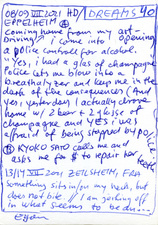 08/09 VII 2021 HD/ DREAMS 40
EPPELHEIM
Coming home from my art-
opening
Driving I come into
a police controll for alcohol.
"yes, I had a glas of champagne
Police lets me blow into a
breathalyzer and keep me in the
dark of the consequences (And
yes, yesterday I actually drove
home w/ 2 beer + 2 glass of
champagne and YES: was
afraid of being stopped by police
KYOKO SATO calls me and
asks me for $ to repair her
teeth
13/14 VII 2021 ZEILSHEIM, FRA
Something sits in/on my neck, but
does not bite // I am jerking off
in what seems to be du...